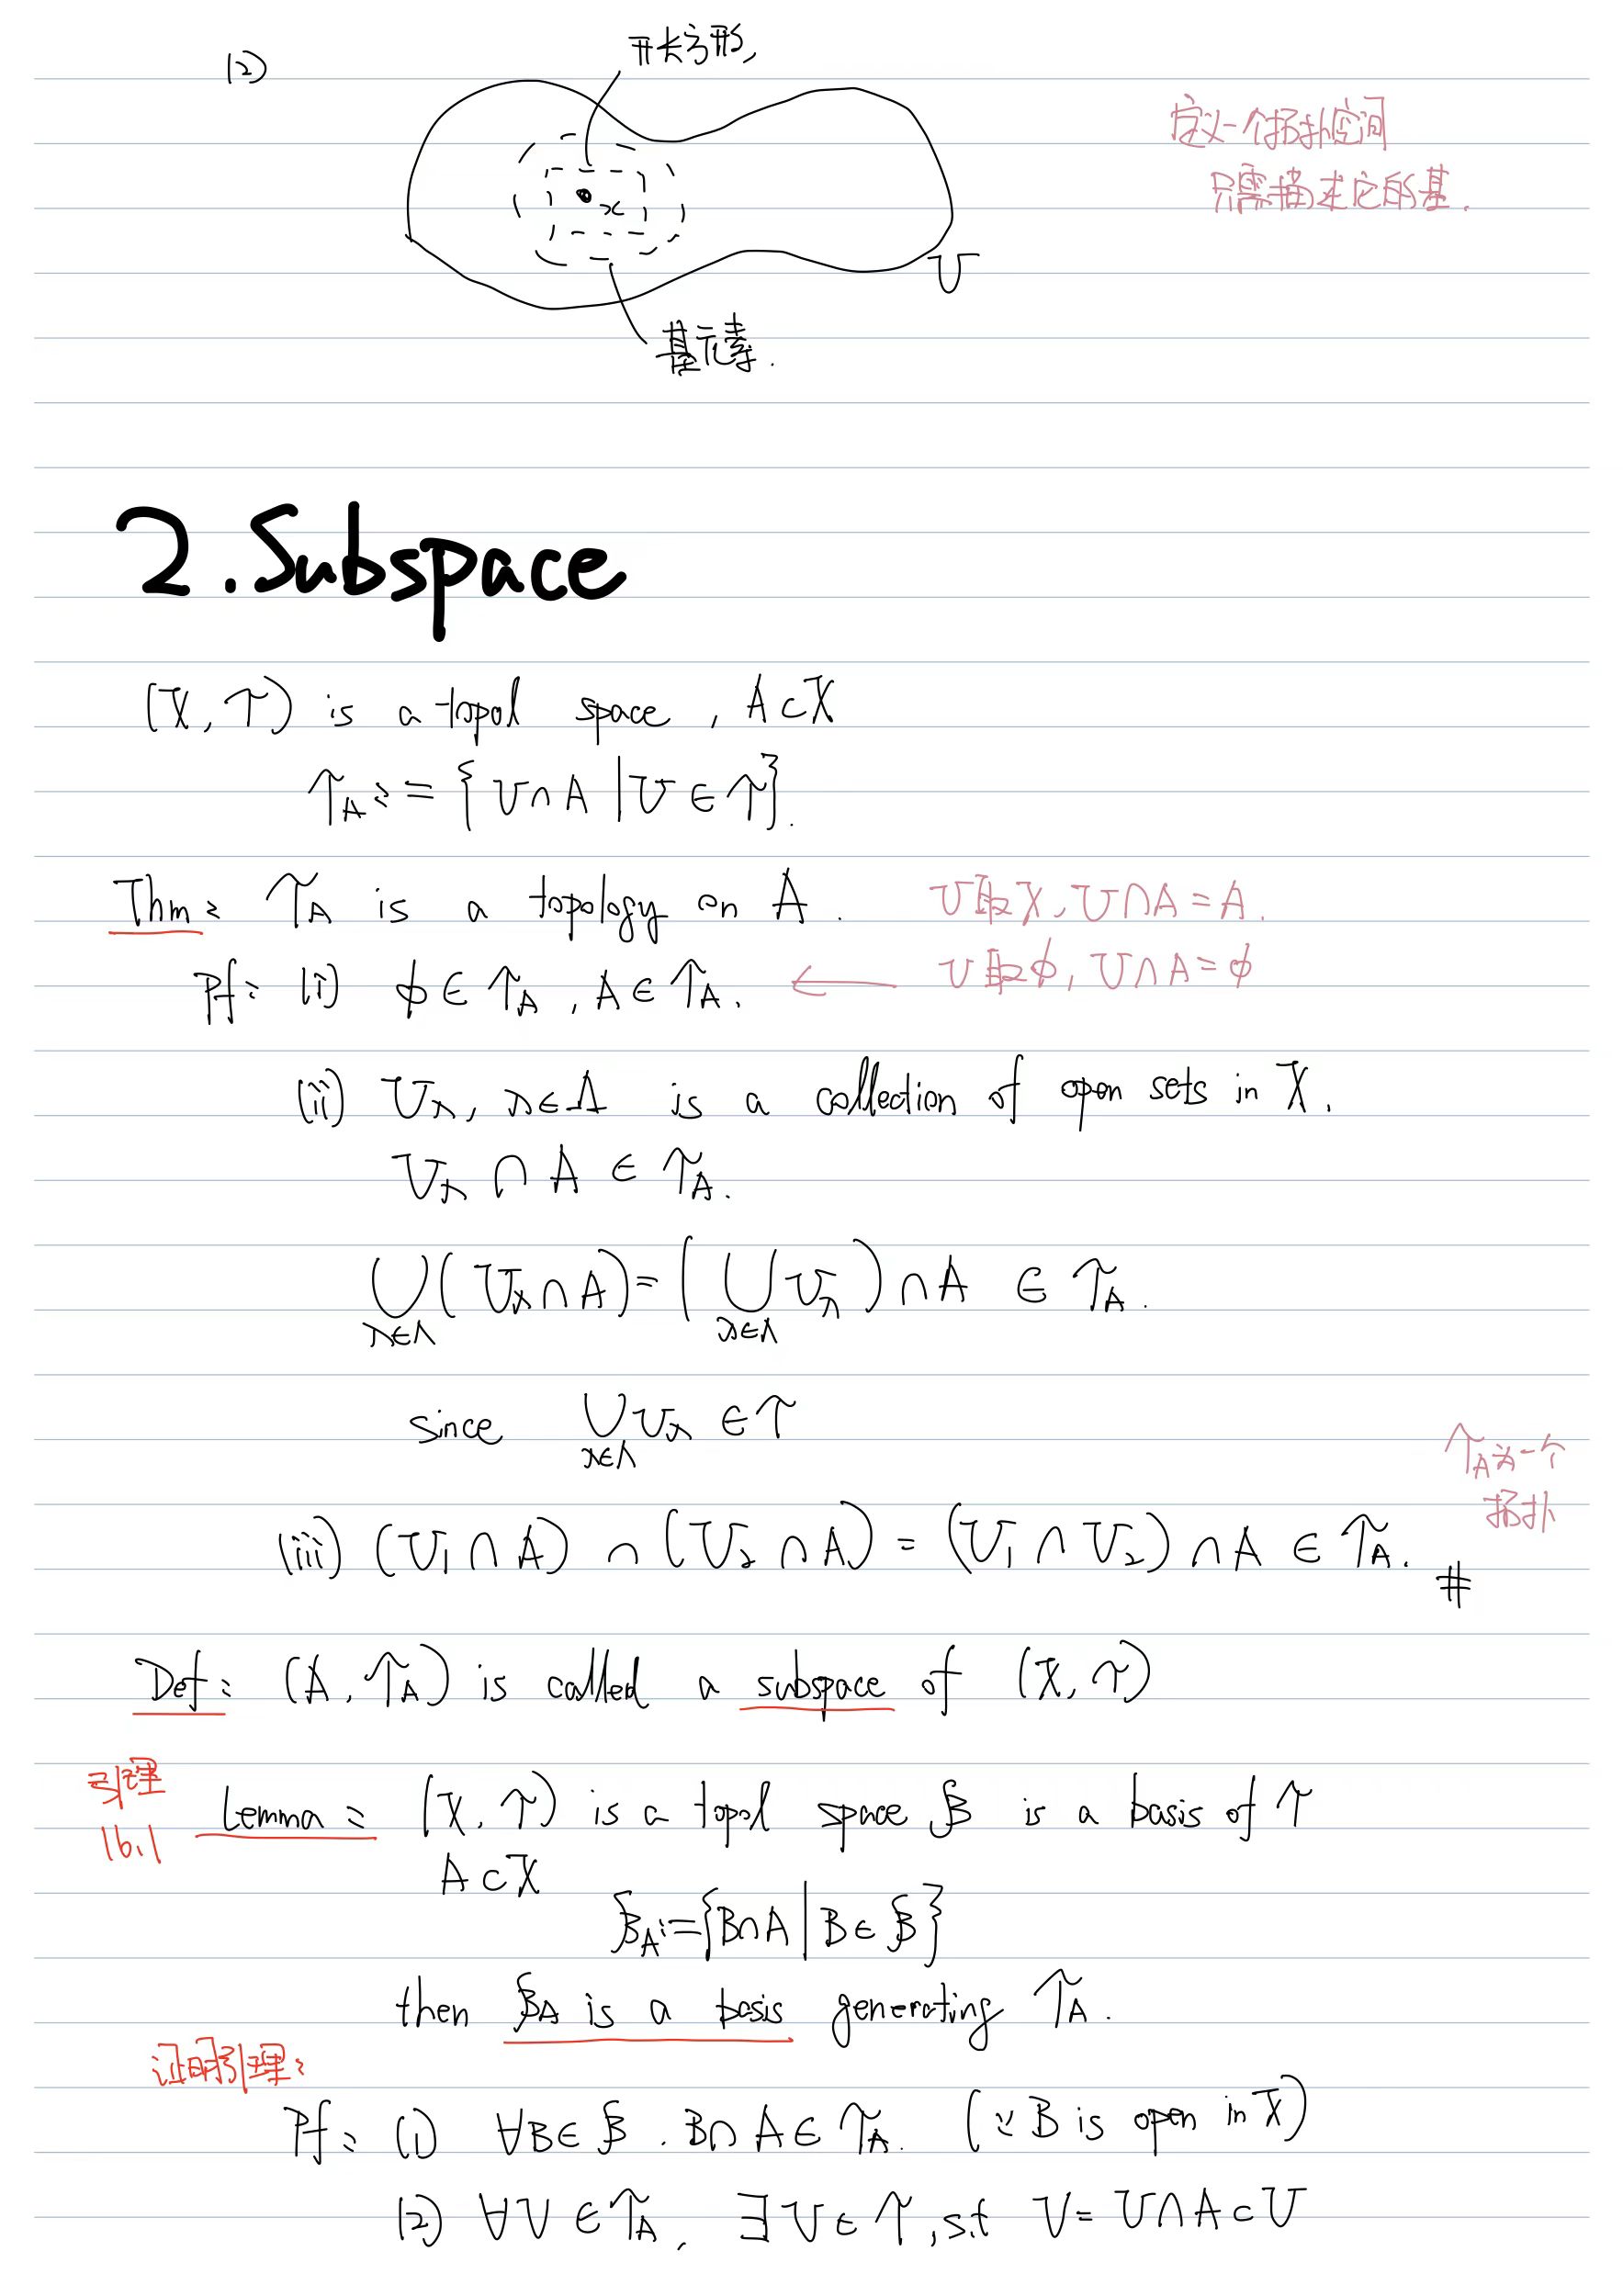 (2)
开长方形,
x
U
基元素.
定义一个拓扑空间
只需描述它的基.
2. Subspace
(X, τ) is a topol space, A⊂X
τ_A := {U∩A | U∈τ}.
Thm: τ_A is a topology on A.
U取X, U∩A=A.
U取φ, U∩A=φ
Pf: (i) φ∈τ_A, A∈τ_A. ←
(ii) U_λ, λ∈Λ is a collection of open sets in X.
U_λ ∩ A ∈ τ_A.
⋃_{λ∈Λ}(U_λ∩A) = (⋃_{λ∈Λ}U_λ)∩A ∈ τ_A.
since ⋃_{λ∈Λ}U_λ ∈τ
τ_A为一个
拓扑
(iii) (U_1∩A) ∩ (U_2∩A) = (U_1∩U_2)∩A ∈ τ_A. #
Def: (A, τ_A) is called a subspace of (X, τ)
引理
16.1
Lemma: (X, τ) is a topol space ℬ is a basis of τ
A⊂X
ℬ_A:={B∩A | B∈ℬ}
then ℬ_A is a basis generating τ_A.
证明引理:
Pf: (1) ∀B∈ℬ. B∩A∈τ_A. (∵B is open in X)
(2) ∀V∈τ_A, ∃U∈τ, s.t V=U∩A⊂U